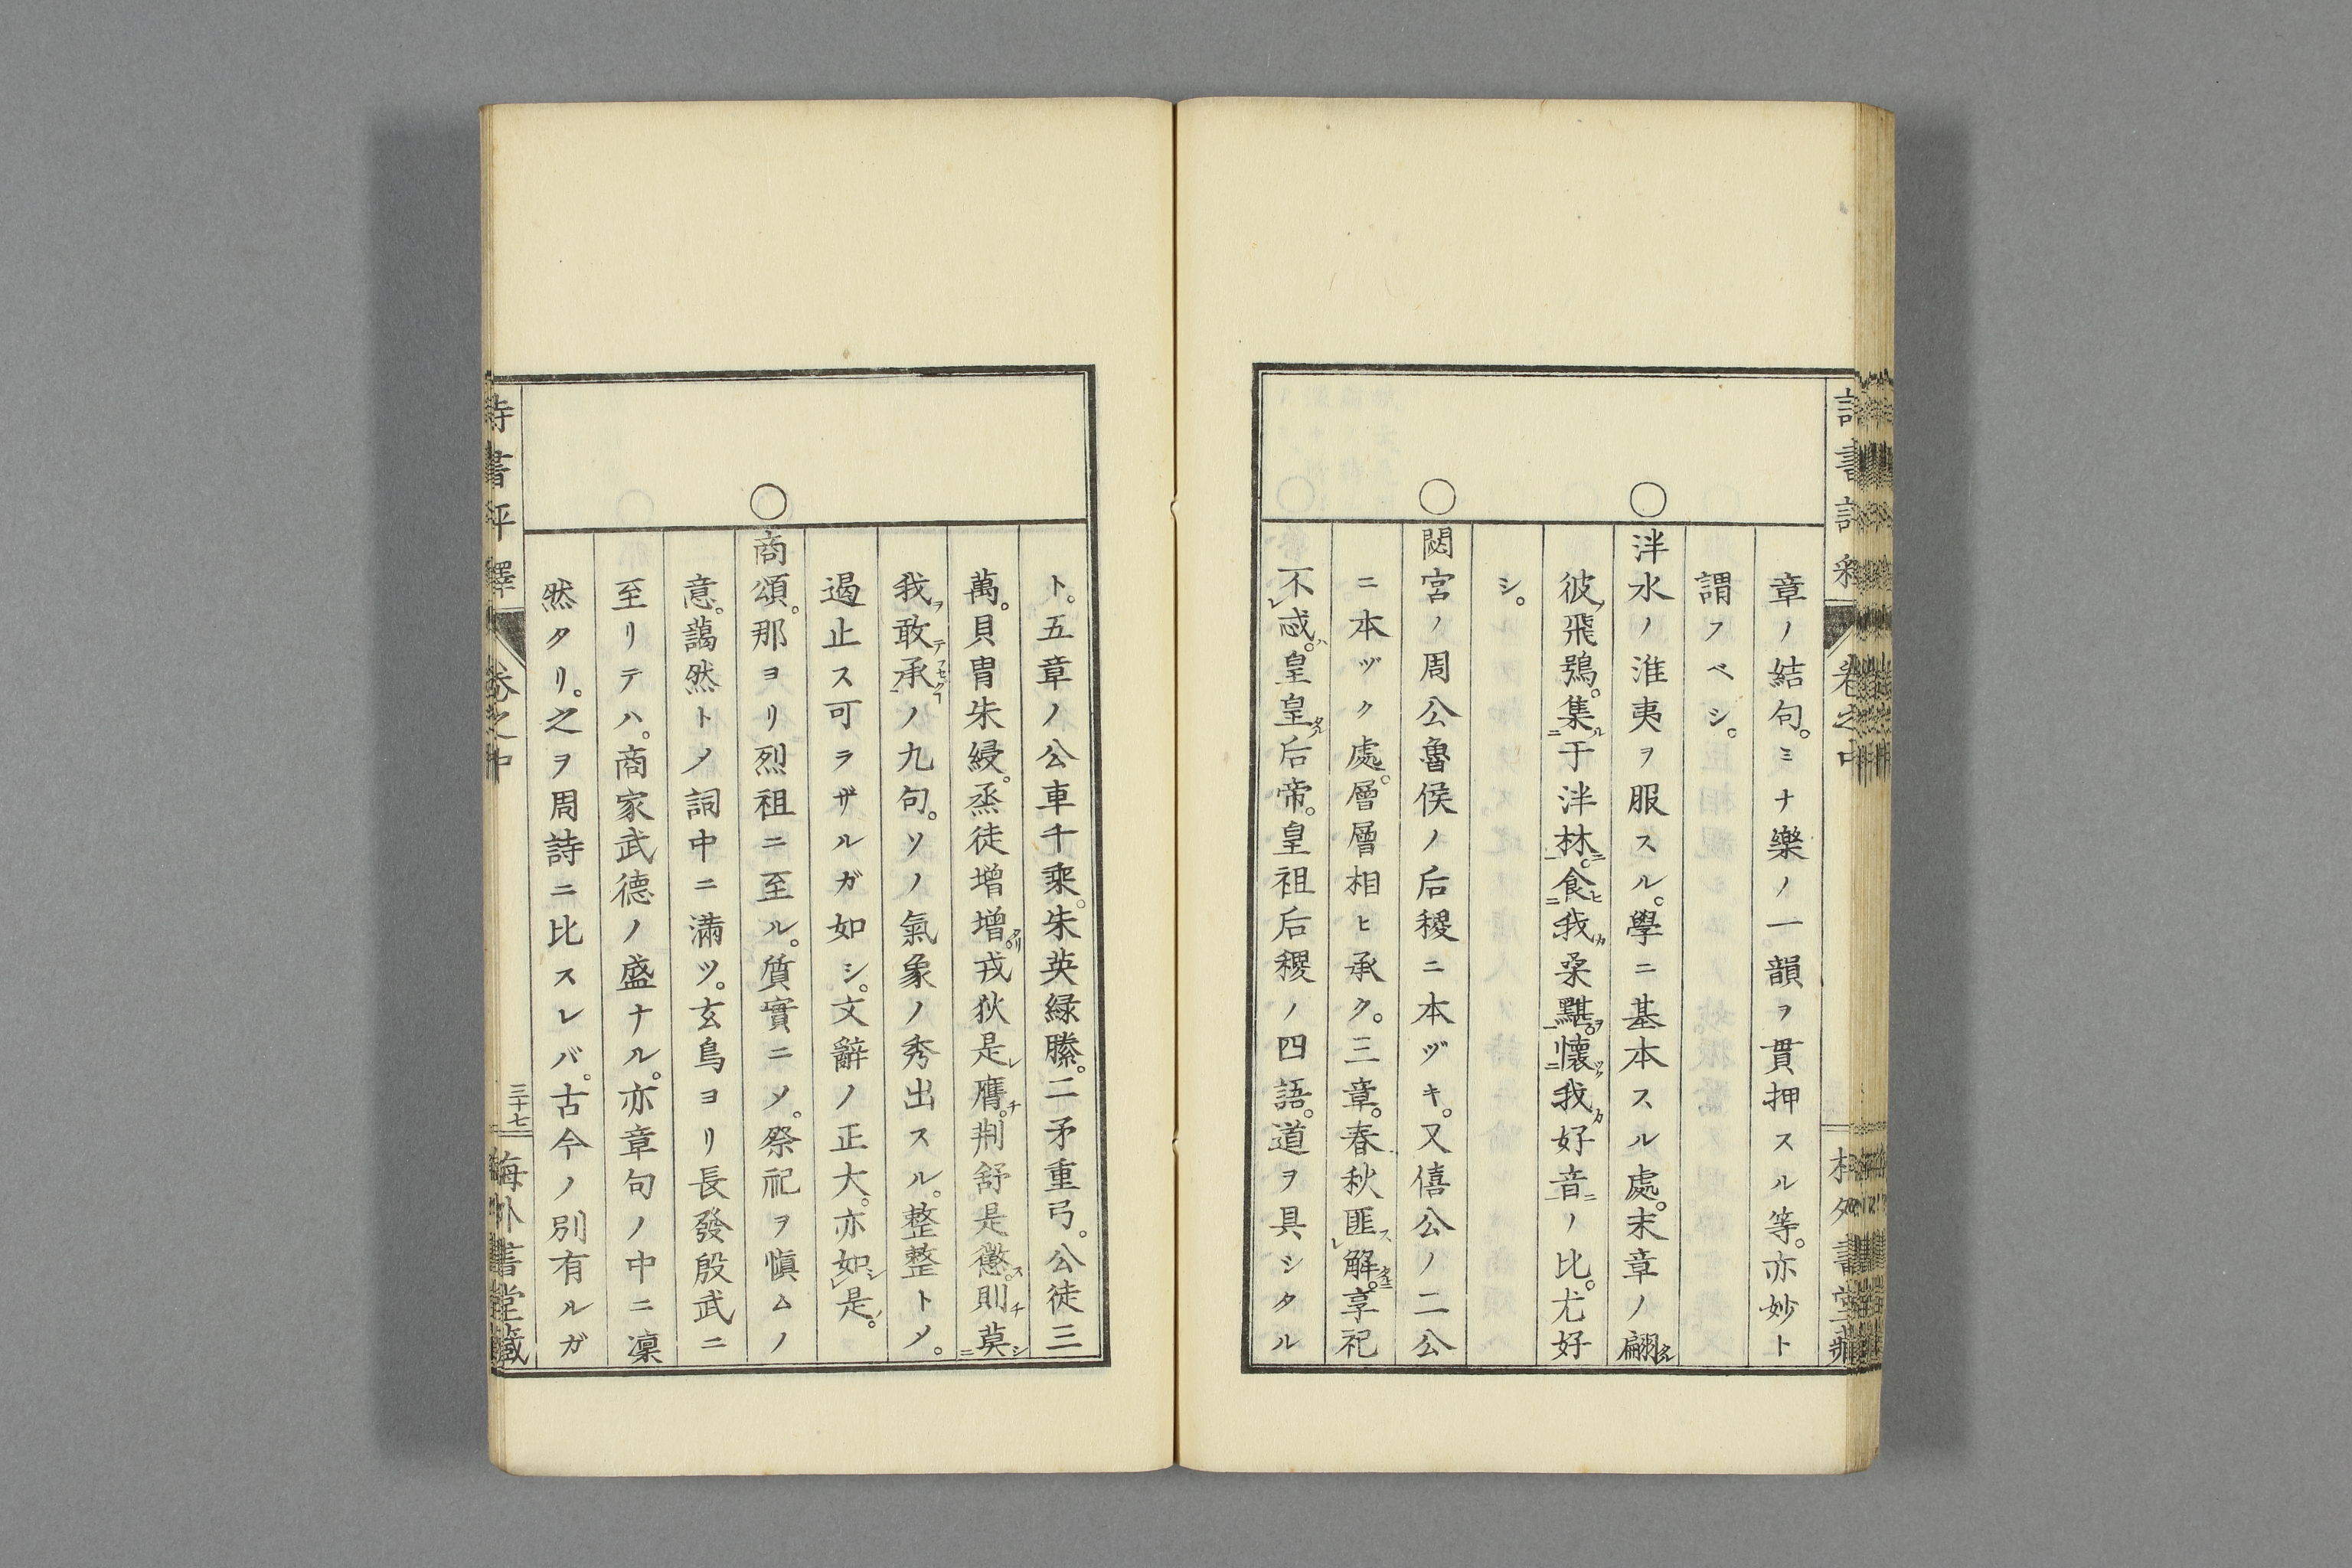 章ノ結句。ミナ樂ノ一韻ヲ貫押スル等。亦妙ト
謂フベシ。
○泮水ノ淮夷ヲ服スル。學ニ基本スル處。末章ノ翩タル
彼飛鴞。集ル于泮林ニ。食ヒ我カ桑黮ヲ。懷我カ好音ニノ比。尤好
シ。
○閟宮ノ周公魯侯ノ后稷ニ本ヅキ。又僖公ノ二公
ニ本ヅク處。層層相ヒ承ク。三章。春秋匪ス解。享祀
不忒。皇皇タル后帝。皇祖后稷ノ四語。道ヲ具シタル
ト。五章ノ公車千乘。朱英綠縢。二矛重弓。公徒三
萬。貝冑朱綅。烝徒增增タリ。戎狄是レ膺チ。荆舒是懲ス。則チ莫シ
我ヲ敢テ承ノ九句。ソノ氣象ノ秀出スル。整整トメ。
遏止ス可ラザルガ如シ。文辭ノ正大。亦如シ是ノ。
○商頌。那ヨリ烈祖ニ至ル。質實ニメ。祭祀ヲ愼ムノ
意。藹然トメ詞中ニ滿ツ。玄鳥ヨリ長發殷武ニ
至リテハ。商家武德ノ盛ナル。亦章句ノ中ニ凜
然タリ。之ヲ周詩ニ比スレバ。古今ノ別有ルガ
詩書評釋 卷之中 三十七 梅外書堂藏